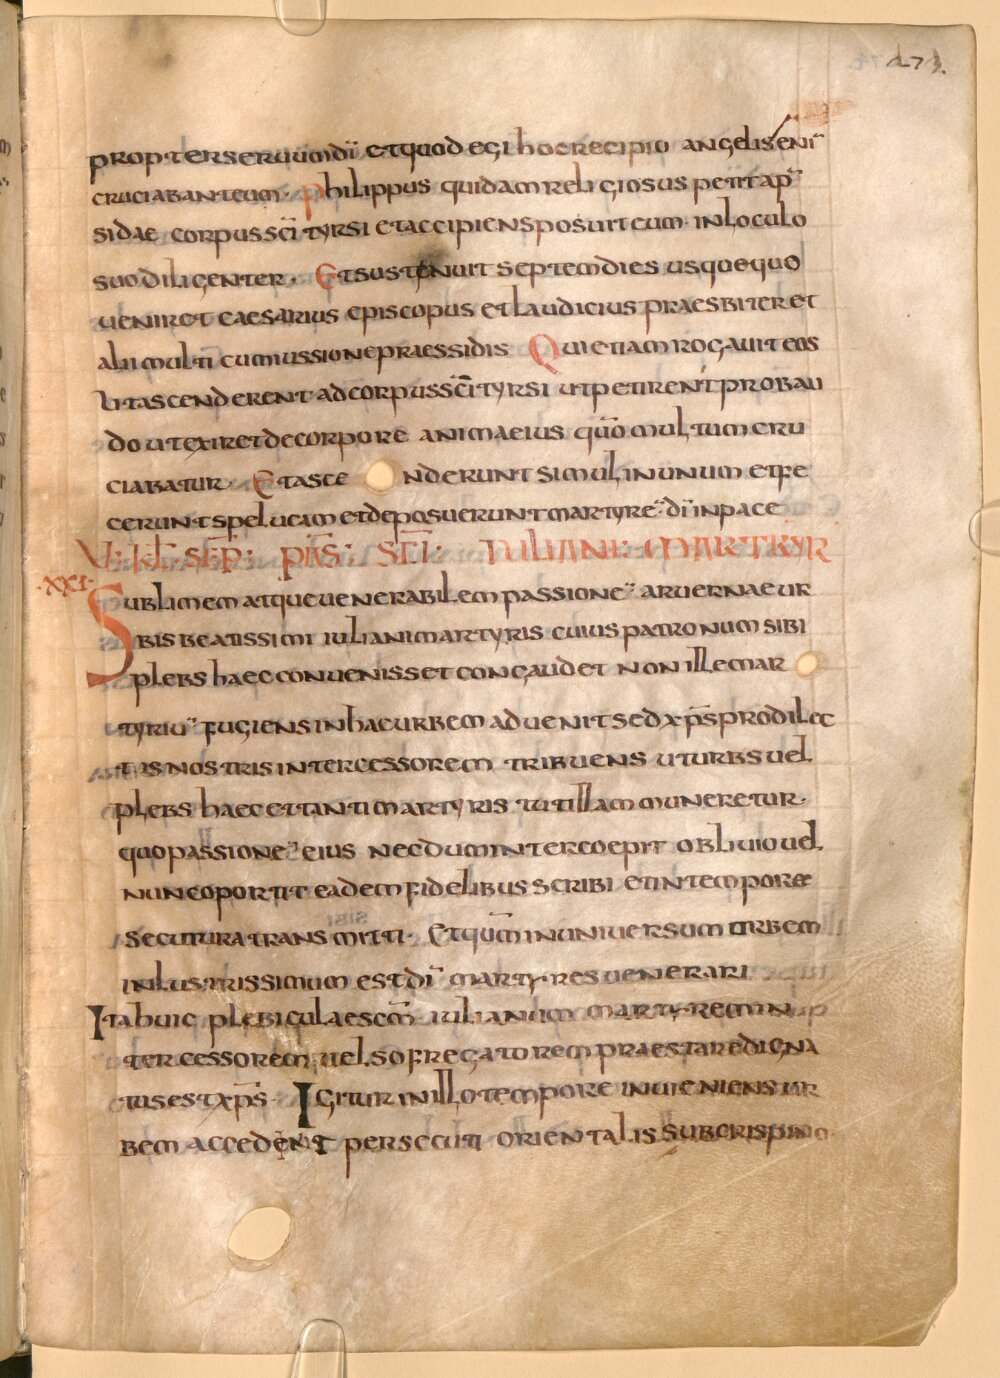 173.
propterseruumdi etquod egi hocrecipio angelisenī
cruciabanteum. Philippus quidamreligiosus petitap̄
sidae corpussc̄i tyrsi etaccipiensposuiteum inloculo
suodiligenter. Etsustenuit septemdies usquequo
ueniret caesarius episcopus etlaudicius praesbiteret
aliimulti cumiussionepraessidis Quietiamrogauiteos
utascenderent adcorpussc̄ityrsi utpetirentprobau
do utexiretdecorpore animaeius quō multumcru
ciabatur. Etasce nderunt simul inunum etfe
ceruntspelucam etdeposueruntmartyrē dī inpace
V: KL: SEP: PAS: SCI: IULIANI: MARTYR
·XXI·
Sublimem atqueuenerabilem passionē aruernaeur
bis beatissimi iulianimartyris cuius patronum sibi
plebs haec conuenisset congaudet non illemar
tyriū fugiensinhacurbem aduenitsedxp̄sprodilec
tisnostrisintercessorem tribuens uturbsuel
plebs haec ettantimartyris tutillammuneretur.
quopassionē eius necdumintercoepit obliuiouel
nuncoportit eademfidelibus scribi etintempore
secutura transmitti. Etquōminuniuersum urbem
inlustrissimum estdī martyresuenerari
Itahuic plebiculaesc̄m iulianum martyremin
tercessorem uelsofregatorempraestaredigna
tusestxp̄s. Igitur inillotempore inuieniensur
bem accedent persecuti orientalis subcrispino